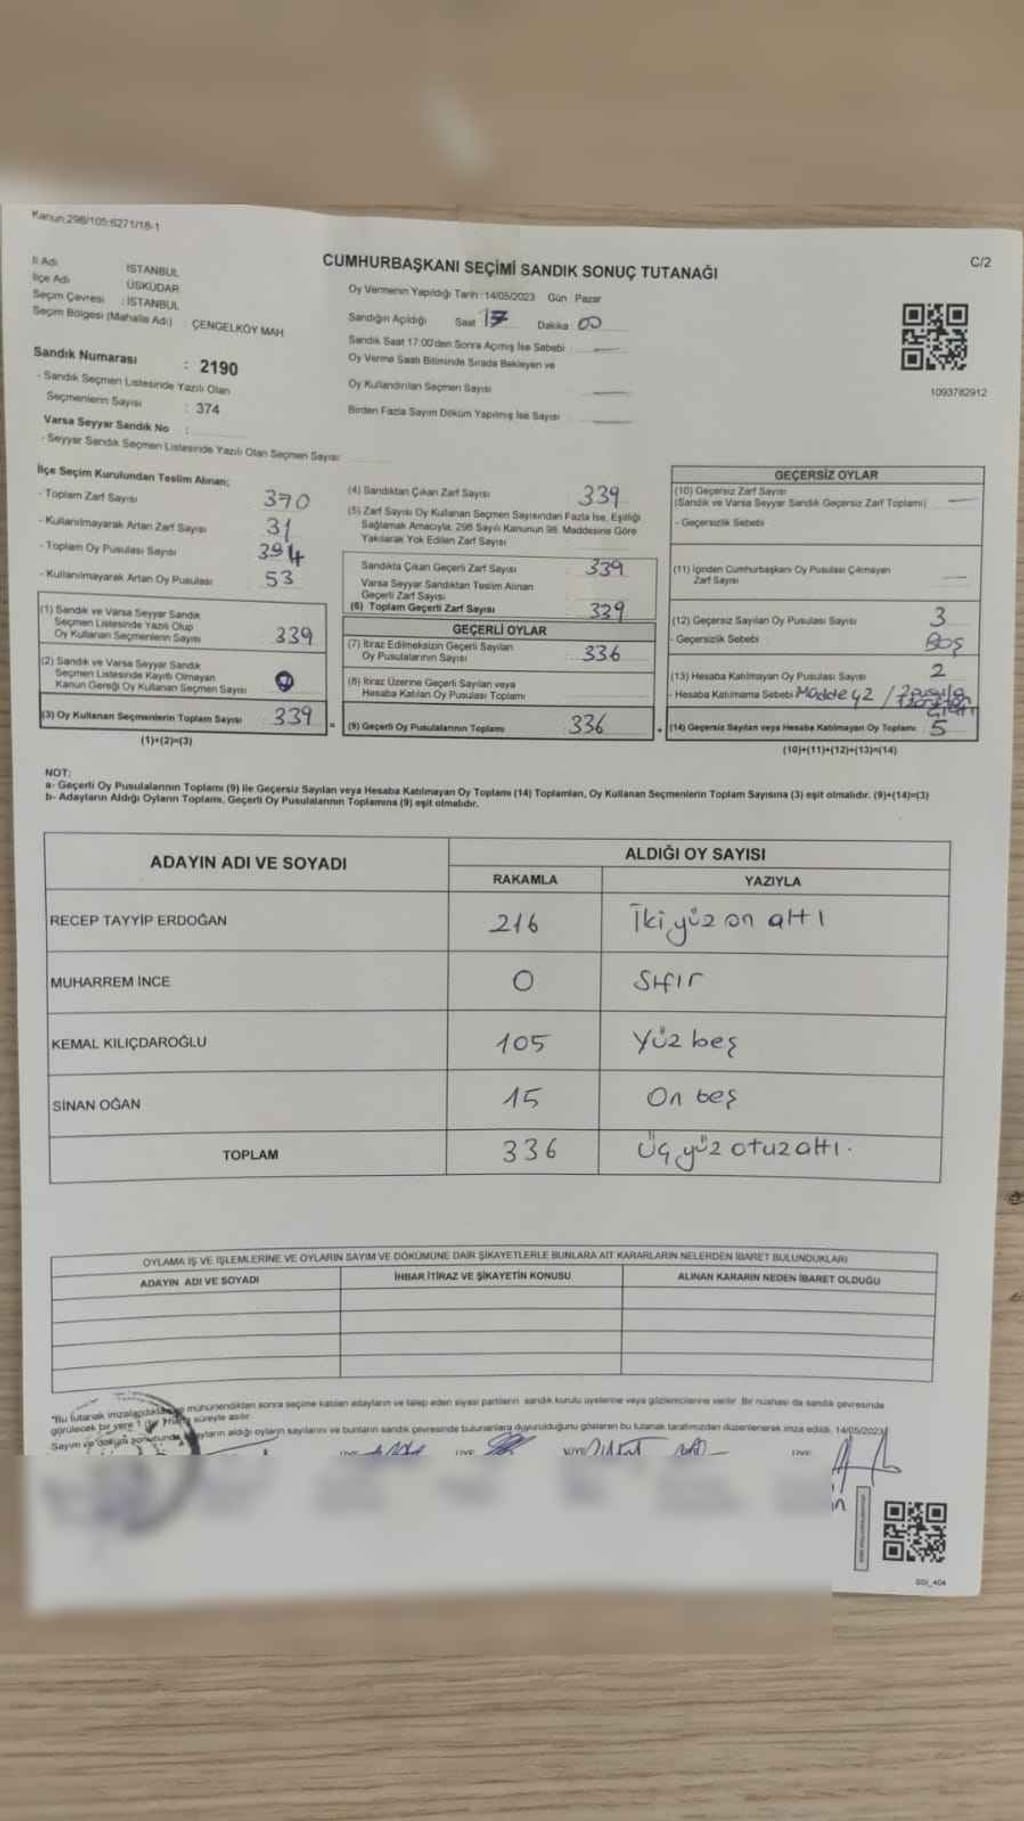 Kanun:298/105:6271/18-1
C/2
CUMHURBAŞKANI SEÇİMİ SANDIK SONUÇ TUTANAĞI
İl Adı İSTANBUL
İlçe Adı ÜSKÜDAR
Seçim Çevresi : İSTANBUL
Seçim Bölgesi (Mahalle Adı) : ÇENGELKÖY MAH
Sandık Numarası : 2190
- Sandık Seçmen Listesinde Yazılı Olan
Seçmenlerin Sayısı : 374
Varsa Seyyar Sandık No :
- Seyyar Sandık Seçmen Listesinde Yazılı Olan Seçmen Sayısı
Oy Vermenin Yapıldığı Tarih : 14/05/2023 Gün : Pazar
Sandığın Açıldığı Saat 17 Dakika 00
Sandık Saat 17:00'den Sonra Açmış İse Sebebi :
Oy Verme Saati Bitiminde Sırada Bekleyen ve
Oy Kullandırılan Seçmen Sayısı
Birden Fazla Sayım Döküm Yapılmış İse Sayısı
1093782912
İlçe Seçim Kurulundan Teslim Alınan;
- Toplam Zarf Sayısı 370
- Kullanılmayarak Artan Zarf Sayısı 31
- Toplam Oy Pusulası Sayısı 394
- Kullanılmayarak Artan Oy Pusulası 53
(1) Sandık ve Varsa Seyyar Sandık
Seçmen Listesinde Yazılı Olup
Oy Kullanan Seçmenlerin Sayısı 339
(2) Sandık ve Varsa Seyyar Sandık
Seçmen Listesinde Kayıtlı Olmayan
Kanun Gereği Oy Kullanan Seçmen Sayısı
(3) Oy Kullanan Seçmenlerin Toplam Sayısı 339
(1)+(2)=(3)
(4) Sandıktan Çıkan Zarf Sayısı 339
(5) Zarf Sayısı Oy Kullanan Seçmen Sayısından Fazla İse, Eşitliği
Sağlamak Amacıyla, 298 Sayılı Kanunun 98. Maddesine Göre
Yakılarak Yok Edilen Zarf Sayısı
Sandıkta Çıkan Geçerli Zarf Sayısı 339
Varsa Seyyar Sandıktan Teslim Alınan
Geçerli Zarf Sayısı
(6) Toplam Geçerli Zarf Sayısı 339
GEÇERLİ OYLAR
(7) İtiraz Edilmeksizin Geçerli Sayılan
Oy Pusulalarının Sayısı 336
(8) İtiraz Üzerine Geçerli Sayılan veya
Hesaba Katılan Oy Pusulası Toplamı
(9) Geçerli Oy Pusulalarının Toplamı 336
GEÇERSİZ OYLAR
(10) Geçersiz Zarf Sayısı
(Sandık ve Varsa Seyyar Sandık Geçersiz Zarf Toplamı)
- Geçersizlik Sebebi
(11) İçinden Cumhurbaşkanı Oy Pusulası Çıkmayan
Zarf Sayısı
(12) Geçersiz Sayılan Oy Pusulası Sayısı 3
- Geçersizlik Sebebi Boş
(13) Hesaba Katılmayan Oy Pusulası Sayısı 2
- Hesaba Katılmama Sebebi Madde 42 / 2 pusula
(14) Geçersiz Sayılan veya Hesaba Katılmayan Oy Toplamı 5
(10)+(11)+(12)+(13)=(14)
NOT:
a- Geçerli Oy Pusulalarının Toplamı (9) ile Geçersiz Sayılan veya Hesaba Katılmayan Oy Toplamı (14) Toplamları, Oy Kullanan Seçmenlerin Toplam Sayısına (3) eşit olmalıdır. (9)+(14)=(3)
b- Adayların Aldığı Oyların Toplamı, Geçerli Oy Pusulalarının Toplamına (9) eşit olmalıdır.
ADAYIN ADI VE SOYADI
ALDIĞI OY SAYISI
RAKAMLA YAZIYLA
RECEP TAYYİP ERDOĞAN 216 İki yüz on altı
MUHARREM İNCE 0 Sıfır
KEMAL KILIÇDAROĞLU 105 Yüz beş
SİNAN OĞAN 15 On beş
TOPLAM 336 Üç yüz otuz altı.
OYLAMA İŞ VE İŞLEMLERİNE VE OYLARIN SAYIM VE DÖKÜMÜNE DAİR ŞİKAYETLERLE BUNLARA AİT KARARLARIN NELERDEN İBARET BULUNDUKLARI
ADAYIN ADI VE SOYADI İHBAR İTİRAZ VE ŞİKAYETİN KONUSU ALINAN KARARIN NEDEN İBARET OLDUĞU
"Bu tutanak imzalandıktan mühürlendikten sonra seçime katılan adayların ve talep eden siyasi partilerin sandık kurulu üyelerine veya gözlemcilerine verilir. Bir nüshası da sandık çevresinde
görülecek bir yere 1 süreyle asılır.
Sayım ve döküm sonucunda, adayların aldığı oyların sayılarını ve bunların sandık çevresinde bulunanlara duyurulduğunu gösteren bu tutanak tarafımızdan düzenlenerek imza edildi. 14/05/2023